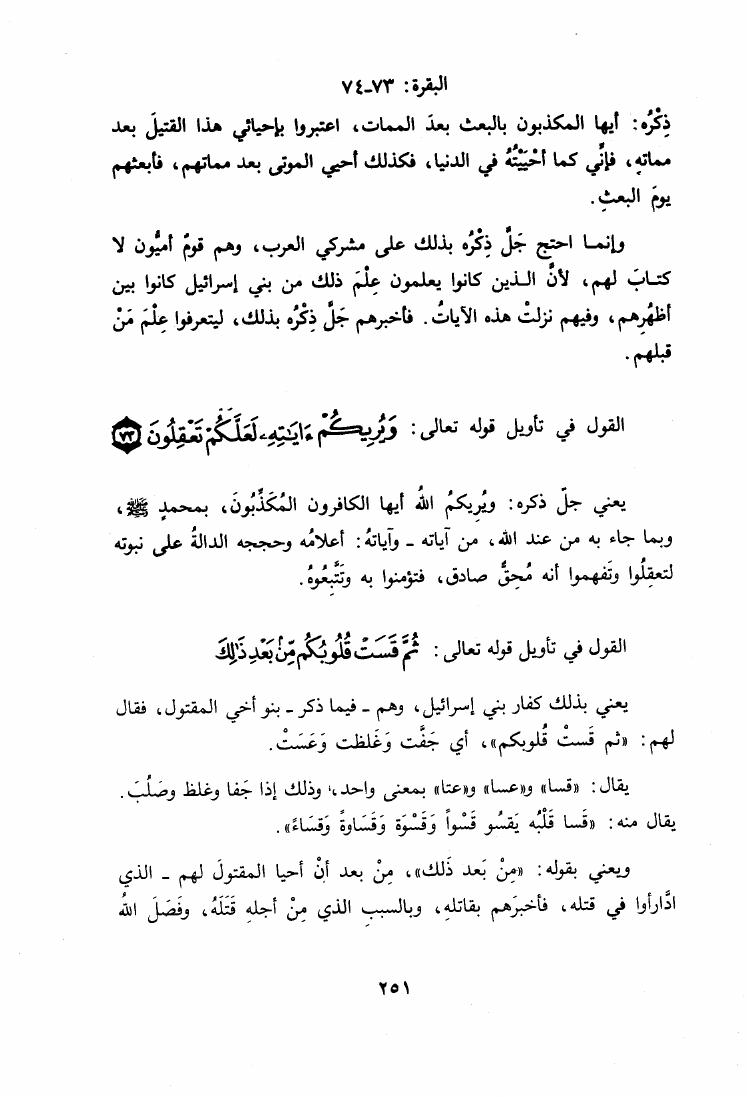 البقرة: ٧٣-٧٤
ذِكْرُه: أيها المكذبون بالبعث بعدَ الممات، اعتبروا بإحيائي هذا القتيلَ بعد
مماتهِ، فإنِّي كما أحْيَيْتُهُ في الدنيا، فكذلك أحيي الموتى بعد مماتهم، فأبعثهم
يومَ البعثِ.
وإنمـا احتج جَلَّ ذِكْرُه بذلك على مشركي العرب، وهم قومٌ أميُّون لا
كتـابَ لهم، لأنَّ الـذين كانوا يعلمون عِلْمَ ذلك من بني إسرائيل كانوا بين
أظهُرِهم، وفيهم نزلتْ هذه الآياتُ. فأخبرهم جَلَّ ذِكْرُه بذلك، ليتعرفوا عِلْمَ مَنْ
قبلهم.
القول في تأويل قوله تعالى: وَيُرِيكُمْ ءَايَـٰتِهِۦ لَعَلَّكُمْ تَعْقِلُونَ ﴿٧٣﴾
يعني جلّ ذكره: ويُرِيكمُ اللهُ أيها الكافرون المُكَذِّبُونَ، بمحمدٍ ﷺ،
وبما جاء به من عند الله، من آياته ـ وآياتهُ: أعلامُه وحججه الدالةُ على نبوته
لتعقِلُوا وتَفهموا أنه مُحِقٌّ صادق، فتؤمنوا به وتَتَّبِعُوهُ.
القول في تأويل قوله تعالى: ثُمَّ قَسَتْ قُلُوبُكُم مِّنۢ بَعْدِ ذَٰلِكَ
يعني بذلك كفار بني إسرائيل، وهم ـ فيما ذكر ـ بنو أخي المقتول، فقال
لهم: «ثم قَستْ قُلوبكم»، أي جَفَّت وَغَلظت وَعَسَتْ.
يقال: «قسا» و«عسا» و«عتا» بمعنى واحد، وذلك إذا جَفا وغلظ وصَلُبَ.
يقال منه: «قَسا قَلْبُه يَقسُو قَسْواً وَقَسْوَة وَقَسَاوةً وَقسَاءً».
ويعني بقوله: «مِنْ بَعد ذَلك»، مِنْ بعد أنْ أحيا المقتولَ لهم ـ الذي
ادَّارأوا في قتله، فأخبرَهم بقاتلهِ، وبالسببِ الذي مِنْ أجلهِ قَتَلَهُ، وفَصَلَ اللهُ
٢٥١